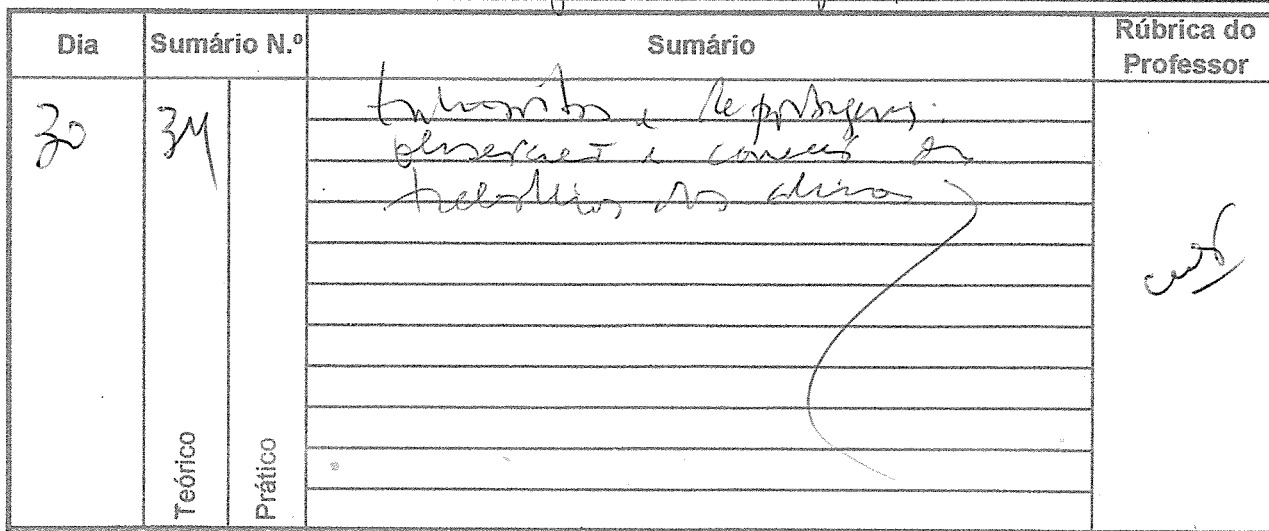 Dia Sumário N.º Sumário Rúbrica do Professor
30 34 Entrevistas e Reportagens.
observação e correcção dos
trabalhos dos alunos
Teórico Prático